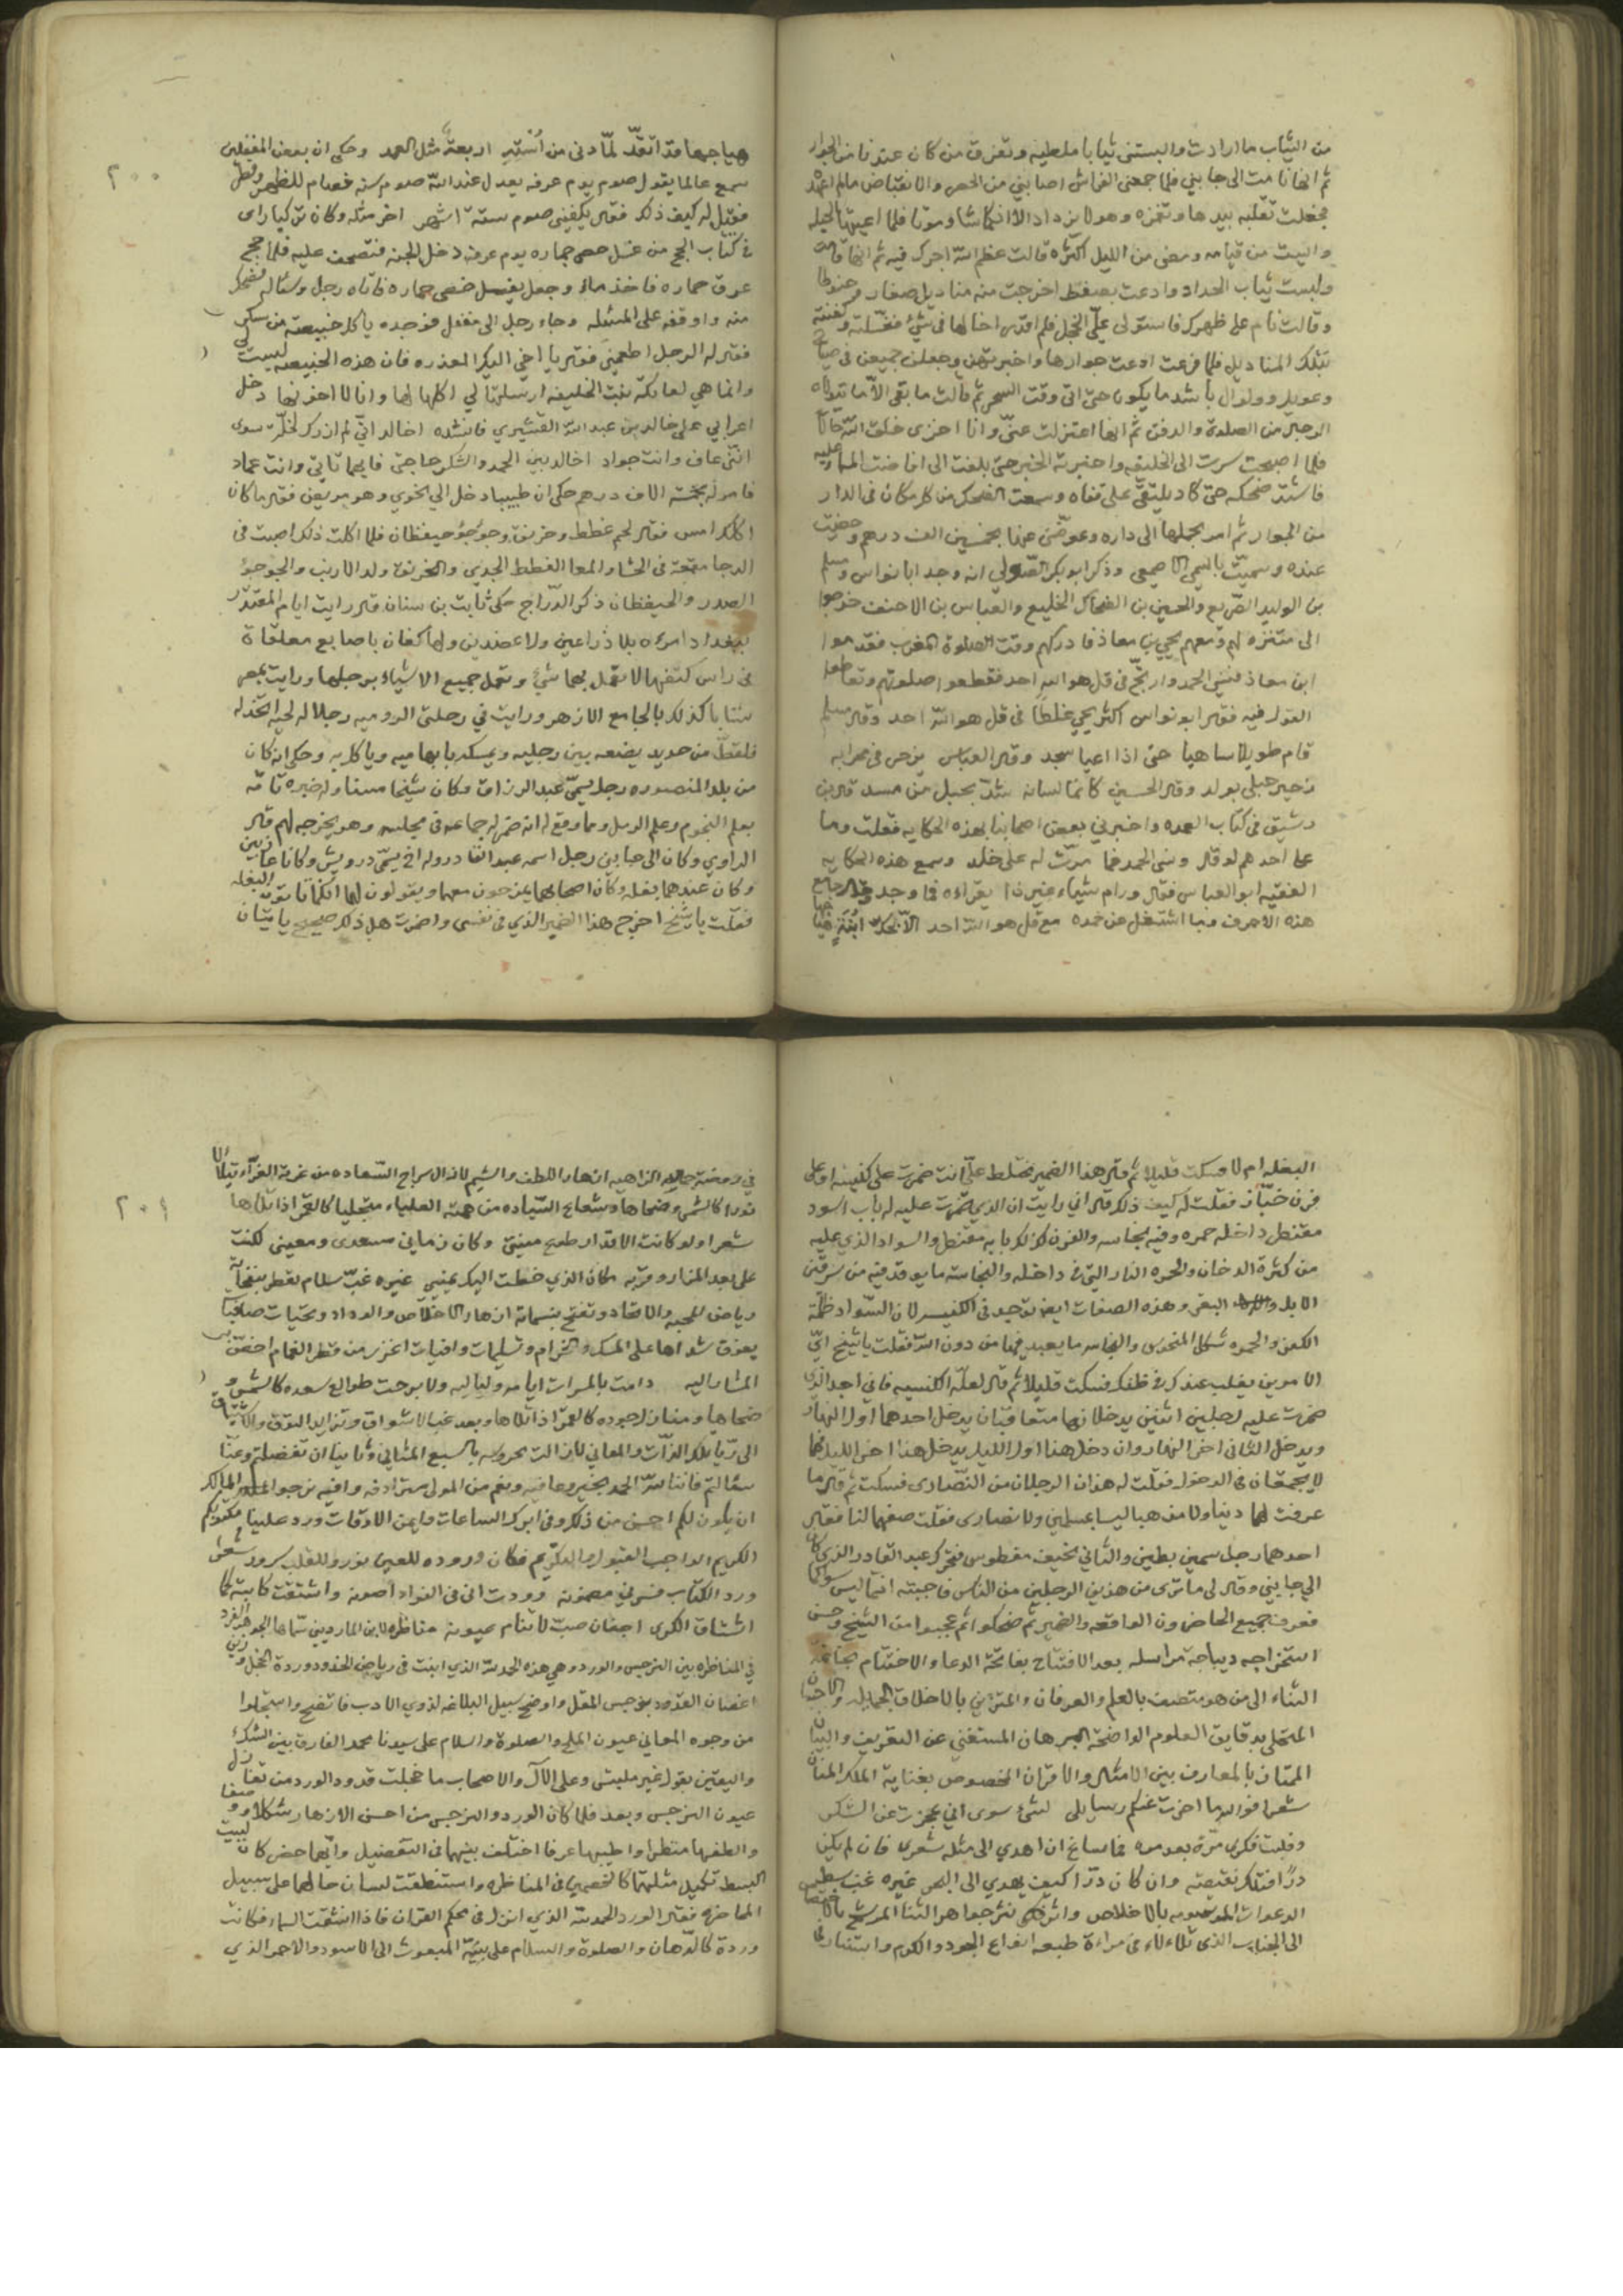 من الثياب ما ارادت والبستنى ثيابا ملطيه وتفرق من كان عندنا من الجوار
ثم انها نامت الى جانبي فلما جمعنى الفراش اصابني من الحصر والانقباض مالم اعهده
فجعلت تقلبه بيدها وتغمزه وهو لا يزداد الا انكماشا وموتا فلما اعيتها الحيله
وايست من قيامه ومضى من الليل اكثره قالت عظم الله اجرك فيه ثم انها قامت
ولبست ثياب الحداد وادعت بصفط اخرجت منه مناديل صغار وحنوطا
وقالت نام على ظهرك فاستولى عليّ الخجل فلم اقدر اخالفها فى شئ فغسلته وكفنته
بتلك المناديل فلما فرغت ادعت جوارها واخبرتهن وجعلن جميعن فى صياح
وعويل وولوال باشد ما يكون حتى اتى وقت السحر ثم قالت ما بقى الا
من الصلوة والدفن ثم انها اعتزلت عنى وانا اخزى خلق الله حالا
فلما اصبحت سرت الى الخليفه واخبرته الخبر حتى بلغت الى
فاشتد ضحكه حتى كاد يلتقى على قفاه وسمعت الضحك من كل مكان فى الدار
من الجوار ثم امر بحملها الى داره وعوضنى عنها بخمسين الف درهم وحضيت
عنده وسميت باسمي الاصمعي وذكر ابو بكر الصولي انه وجد ابا نواس ومسلم
بن الوليد الصريع والحسين بن الضحاك الخليع والعباس بن الاحنف خرجوا
الى متنزه لهم ومعهم يحيى بن معاذ فادركهم وقت الصلوة المغرب فقدموا
ابن معاذ فنسى الحمد وارتج فى قل هو الله احد فقطعوا صلوتهم وتعاطوا
القول فيه فقال ابو نواس اكثر يحيى غلطا فى قل هو الله احد وقال مسلم
قام طويلا ساهيا حتى اذا اعيا سجد وقال العباس يزحر فى محرابه
زحير حبلى بولد وقال الحسين كانما لسانه شد بحبل من مسد قال بن
رشيق فى كتاب العمده واخبرني بعض اصحابنا بهذه الحكايه فقلت وما
على احدهم لو قال ونسى الحمد فما مرت له على خلد وسمع هذه الحكايه
الفقيه ابو العباس فقال ورام شياء غير ذا يقراءه فما وجد
هذه الاحرف وما اشتغل عن حمده مع قل هو الله احد الا
هياجها قد اتقد لما دنى من اربعة مثل العمد وحكى ان بعض المغفلين
سمع عالما يقول صوم يوم عرفه يعدل عند الله صوم سنه فصام للظهر وفطر
فقيل له كيف ذلك فقال يكفينى صوم ستة اشهر اخر مثله وكان تركيا راى
فى كتاب الحج من غسل حصى جماره يوم عرفه دخل الجنه فتصحف عليه فلما حج
عرق حماره فاخذ ماء وجعل يغسل خصى حماره فاتاه رجل وساله فضحك
منه واوقفه على المسئله وجاء رجل الى مغفل فوجده ياكل خبيصه من سكر
فقال له الرجل اطعمني فقال يا اخى اليك المعذره فان هذه الخبيصه ليست لي
وانما هي لعاتكة بنت الخليفه ارسلتها لي اكلها لها وانا لا اخونها دخل
اعرابي على خالد بن عبد الله القشيري فانشده اخالد اني لم ازرك لخلة سوى
انني عاف وانت جواد اخالد بين الحمد والشكر حاجتي فايهما تاتي وانت عماد
فامر له بخمسة الاف درهم حكى ان طبيبا دخل الى نحوي وهو مريض فقال ما كان
اكلك امس فقال لحم غطط وخرنق وجوجو حيقطان فلما اكلت ذلك اصبت فى
الدجا مغصة فى الحشا والمعا الغطط الجدى والخرنق ولد الارنب والجوجو
الصدر والحيقطان ذكر الدراج حكى ثابت بن سنان قال رايت ايام المقتدر
ببغداد امراءه بلا ذراعين ولا عضدين ولها كفان باصابع معلقاة
فى راس كتفيها لا تعمل بهما شئ وتعمل جميع الاشياء برجليها ورايت بمصر
شابا كذلك بالجامع الازهر ورايت في رحلتى الروميه رجلا له لحيه اتخذ له
قلقط من حديد يضعه بين رجليه ويمسكه بابهاميه وياكل به وحكى انه كان
من بلد المنصوره رجل يسمى عبد الرزاق وكان شيخا مسنا وله خبرة تامه
بعلم النجوم وعلم الرمل ومما وقع له انه ضمر له جماعه فى مجلسه وهو يخرجه لهم قال
الراوي وكان الى جانبي رجل اسمه عبد القادر وله اخ يسمى درويش وكانا عازبين
وكان عندهما بغله وكان اصحابهما يمزحون معهما ويقولون لهما انكما تاتون البغله
فقلت يا شيخ اخرج هذا الضمير الذي فى نفسى واضمرت هل ذلك صحيح ياتيان
٢٠٠
البغله ام لا فسكت قليلا ثم قال هذا الضمير مختلط عليّ انت ضمرت على كنيسه او على
فرن خباز فقلت له كيف ذلك قال اني رايت ان الذي ضمرت عليه له باب اسود
مقنطر داخله حمره وفيه نجاسه والفرن كذلك بابه مقنطر والسواد الذي عليه
من كثرة الدخان والحمره النار التى فى داخله والنجاسة ما يوقد فيه من سرقين
الابل والبقر وهذه الصفات ايضا توجد فى الكنيسه لان السواد ظلمة
الكفر والحمره شكل المنحوس والنجاسه ما يعبد فيها من دون الله فقلت يا شيخ اىّ
الامرين يغلب عندك فى ظنك فسكت قليلا ثم قال لعله الكنيسه فاني اجد الذى
ضمرت عليه لرجلين اثنين يدخلانها متعاقبان يدخل احدهما اول النهار
ويدخل الثانى اخر النهار وان دخل هذا اول الليل يدخل هذا اخر الليل فهما
لا يجتمعان فى الدخول فقلت له هذان الرجلان من النصارى فسكت ثم قال ما
عرفت لهما دينا ولا مذهبا ليسا بمسلمين ولا نصارى فقلت صفهما لنا فقال
احدهما رجل سمين بطين والثانى نحيف مقطوس فتحرك عبد القادر الذى كان
الى جانبي وقال لى ما ترى من هذين الرجلين من الناس فاجبته انما ليس سواكما
فعرف جميع الحاضرون الواقعه والضمير ثم ضحكوا ثم عجبوا من الشيخ وحسن
استخراجه ديباجة مراسله بعد الافتتاح بفاتحة الدعا والاختتام بخاتمة
الثناء الى من هو متصف بالعلم والعرفان والمتزين بالاخلاق الجميله والاحسان
المتحلى بدقايق العلوم الواضحة البرهان المستغني عن التعريف والبيان
الممتاز بالمعارف بين الامثال والاقران المخصوص بعناية الملك المنان
شعرا فوالله ما اخرت عنكم رسايلى لشئ سوى اني عجزت عن الشكر
وقلبت فكرى مرّة بعد مره فما ساغ ان اهدي الى مثله شعرى فان لم يكن
درّا فتلك نقيصة وان كان درّا كيف يهدي الى البحر غيره غب تسطير
الدعوات المرضويه بالاخلاص واشرف نثر جواهر الثنا المرشح بالاختصاص
الى الجناب الذى تلاءلاء فى مراءة طبعه انواع الجود والكرم واستنار لنا
في روضة الزاهيه ازهار اللطف والشيم لازال سراج السعاده من غرته الغرّاء يتلالا
نورا كالشمس وضحاها وشعاع السياده من همته العلياء متجليا كالقمر اذا تلاها
شعرا ولو كانت الاقدار طوع مشيئتى وكان زمانى مسعدى ومعينى لكنت
على بعد المزار وقربه مكان الذي خطت اليك يمينى غيره غبّ سلام
رياض المحبه والاتحاد وتفتح بنسماته ازهار الاخلاص والوداد وتحيات صافيات
يفوق شذاها على المسك والخزام وتسليمات وافيات اغزر من قطر الغمام اخصّ
المشار اليه دامت بالمسرات ايامه ولياليه ولا برحت طوالع سعده كالشمس و
ضحاها ومنازل وجوده كالقمر اذا تلاها وبعد غب الاشواق وتزايد التوق والاشتياق
الى رؤيا تلك الذات والمعاني لازالت محروسه بالسبع المثاني وثانيا ان تفضلتم وعنا
سالتم فاننا لله الحمد بخير وعافيه ونعم من المولى مترادفه وافيه نرجوا المالك
ان يكون لكم احسن من ذلك وفى ابرك الساعات وايمن الاوقات ورد علينا مكتوبكم
الكريم الواجب القبول والتكريم فكان وروده للعين نور وللقلب سرور شعرا
ورد الكتاب فسرنى مضمونه ووددت انى فى الفواد اصونه واشتقت كاتبه كما
اشتاق الكرى اجفان صبّ لا تنام عيونه مناظره لابن المارديني سماها الجوهر الفرد
في المناظره بين النرجس والورد وهي هذه الحمد لله الذي انبت فى رياض الخدود وردة الخجل وزين
اغصان القدود بنرجس المقل واوضح سبيل البلاغه لذوي الادب فاتضح واستجلوا
من وجوه المعاني عيون الملح والصلوة والسلام على سيدنا محمد الفارق بين الشك
واليقين بقول غير ملتبس وعلى الآل والاصحاب ما خجلت قدود الورد من تغازل
عيون النرجس وبعد فلما كان الورد والنرجس من احسن الازهار شكلا ووصفا
والطفها منظرا واطيبها عرفا اختلف بينهما فى التفضيل وايهما حض كان لبيت
البسط تكميل مثلتهما كالخصمين فى المناظره واستنطقت لسان حالهما على سبيل
المحاضره فقال الورد الحمد لله الذي انزل فى محكم القران فاذا انشقت السماء فكانت
وردة كالدّهان والصلوة والسلام على نبيّه المبعوث الى الاسود والاحمر الذي
٢٠١